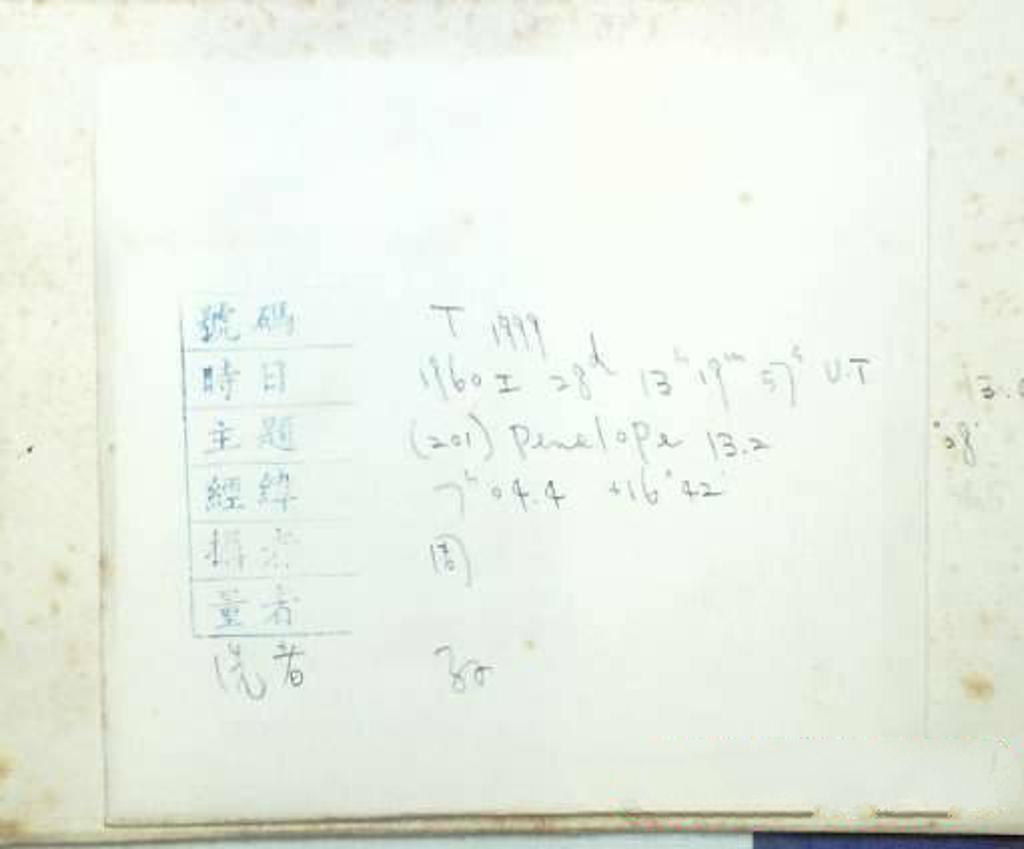 號碼 T 1999
時日 1960 I 28d 13h 19m 57s U.T
主題 (201) Penelope 13.2
經緯 7h 04.4 +16° 42'
攝者 周
量者
洗者